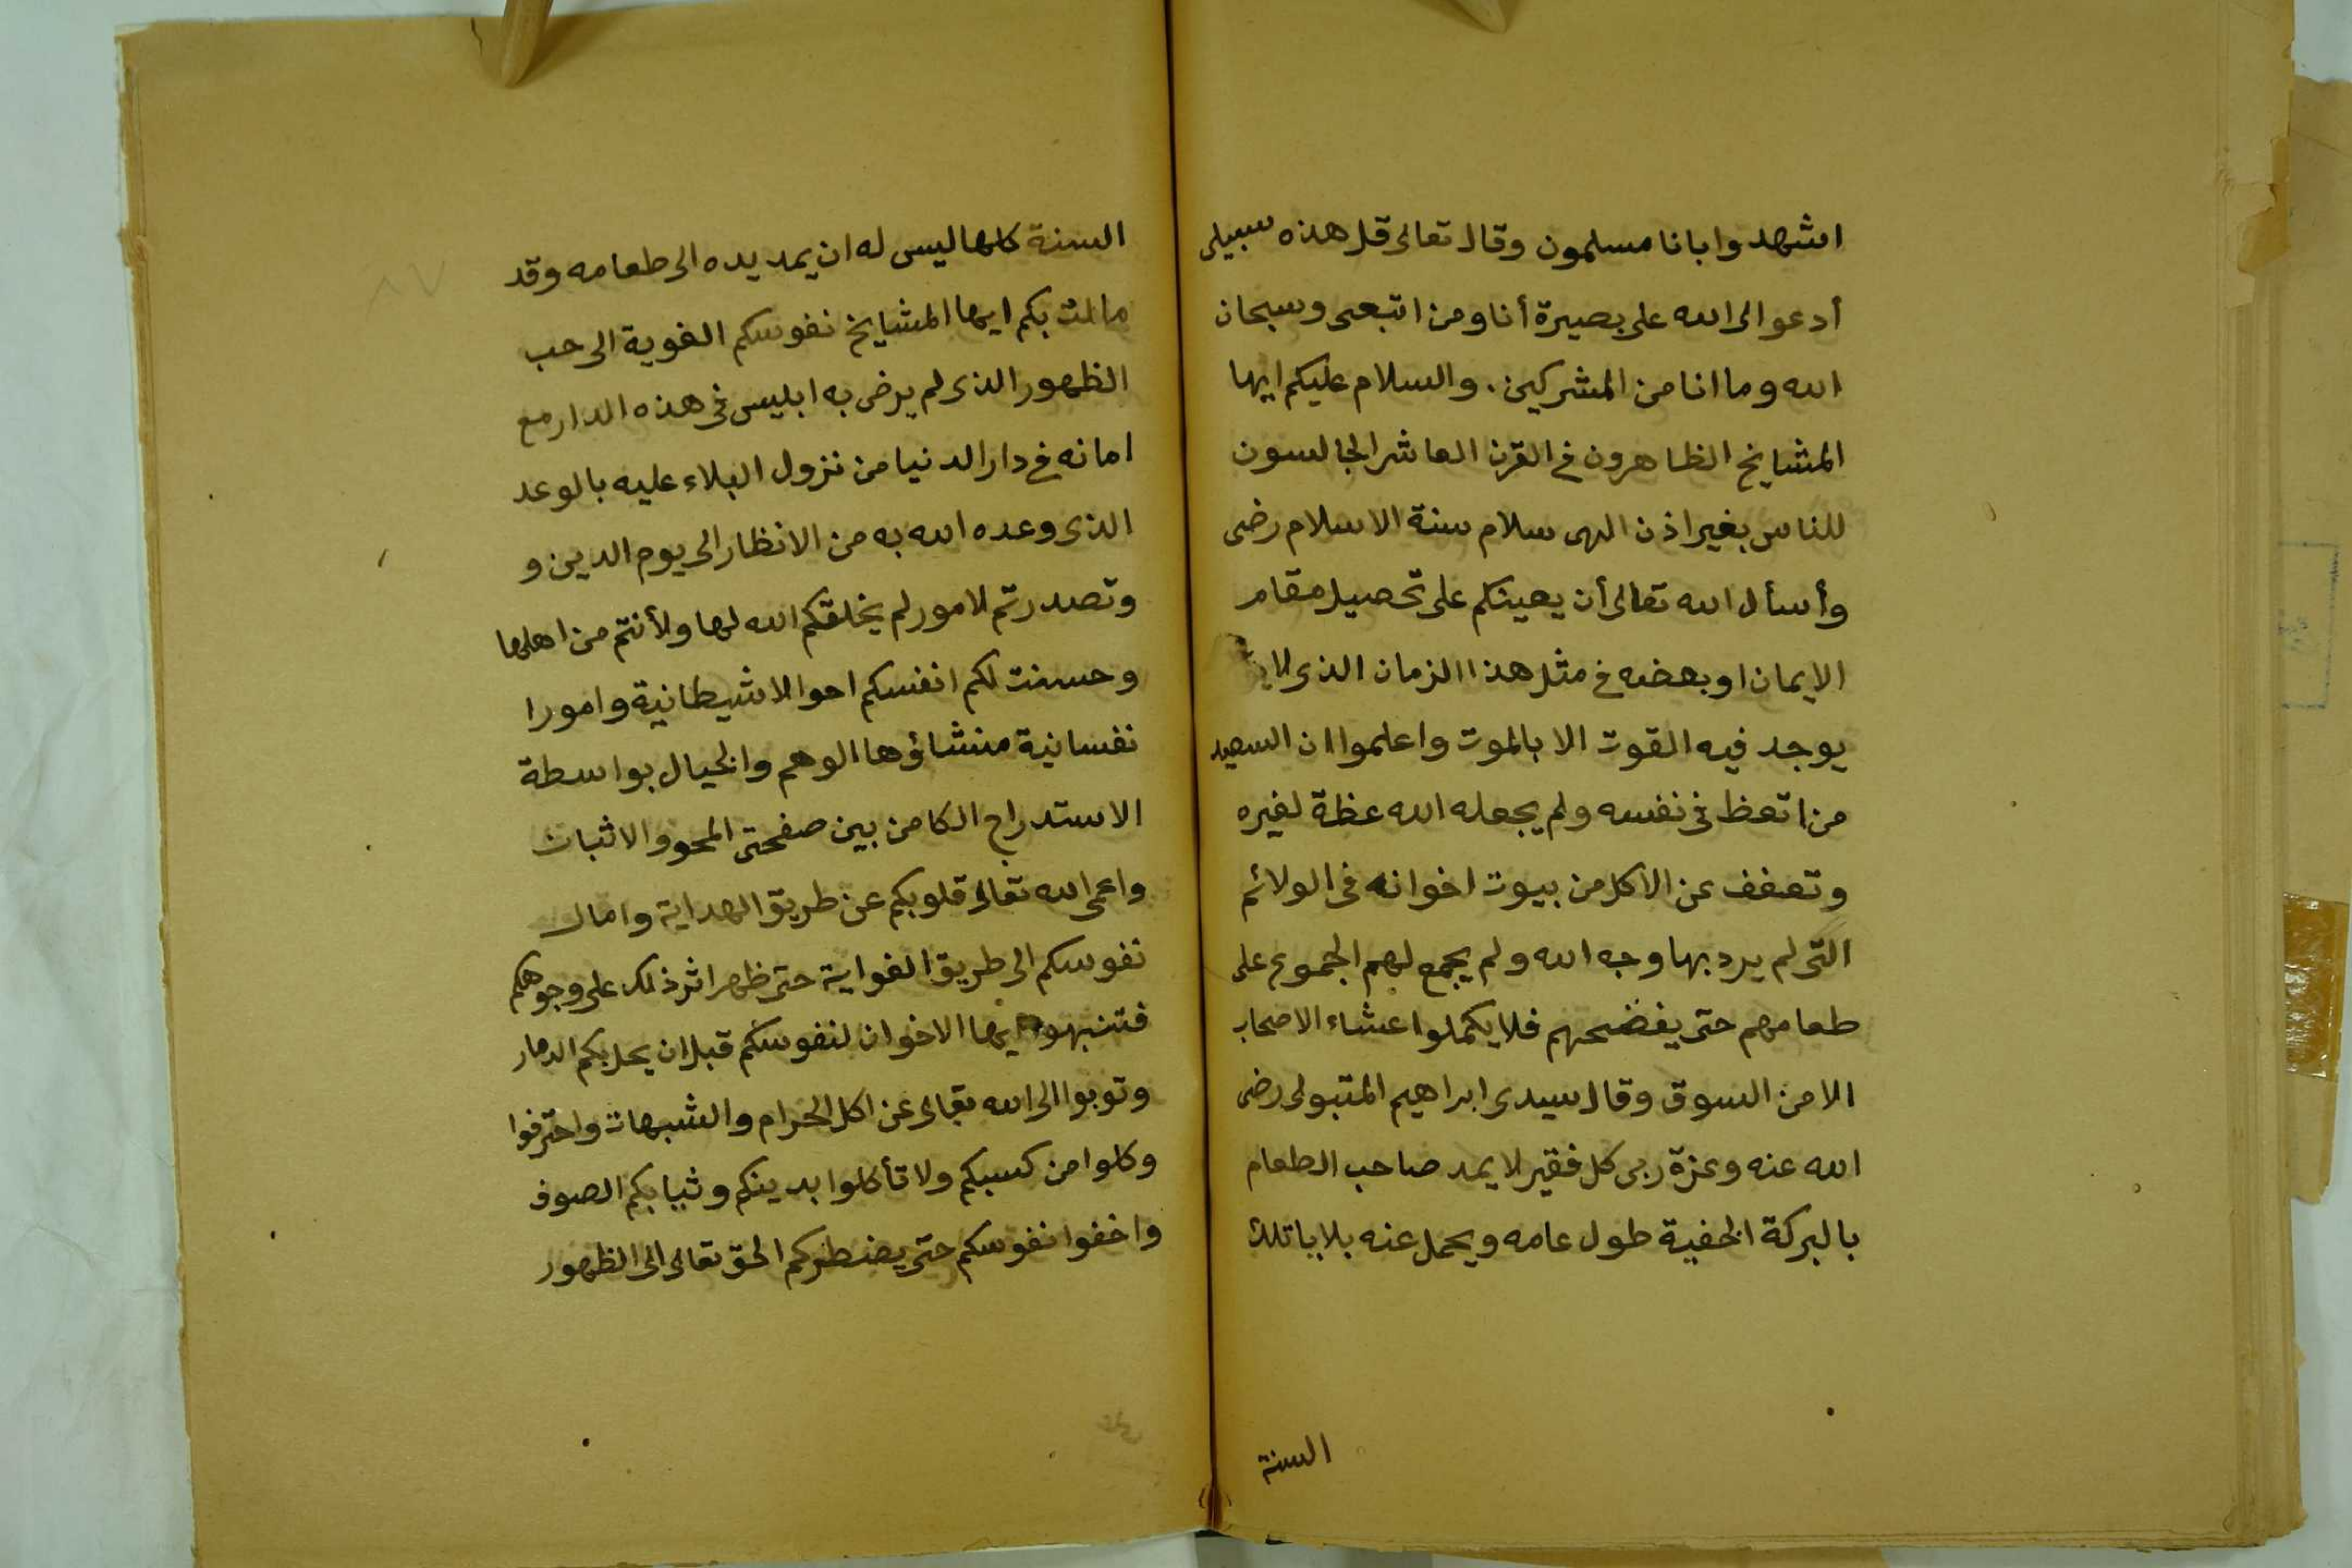 اشهدوا بانا مسلمون وقال تعالى قل هذه سبيلى
أدعو الى الله على بصيرة أنا ومن اتبعنى وسبحان
الله وما انا من المشركين. والسلام عليكم ايها
المشايخ الظاهرون فى القرن العاشر الجالسون
للناس بغير اذن الهى سلام سنة الاسلام رضى
وأسأل الله تعالى أن يعينكم على تحصيل مقام
الايمان او بعضه فى مثل هذا الزمان الذى لا
يوجد فيه القوت الا بالموت واعلموا ان السعيد
من اتعظ فى نفسه ولم يجعله الله عظة لغيره
وتعفف عن الأكل من بيوت اخوانه فى الولائم
التى لم يرد بها وجه الله ولم يجمع لهم الجموع على
طعامهم حتى يفضحهم فلا يكملوا عشاء الاصحاب
الا من السوق وقال سيدى ابراهيم المتبولى رضى
الله عنه وعزة ربى كل فقير لا يمد صاحب الطعام
بالبركة الخفية طول عامه ويحمل عنه بلايا تلك
السنة
السنة كلها ليس له ان يمد يده الى طعامه وقد
مالت بكم ايها المشايخ نفوسكم الغوية الى حب
الظهور الذى لم يرض به ابليس فى هذه الدار مع
امانه فى دار الدنيا من نزول البلاء عليه بالوعد
الذى وعده الله به من الانظار الى يوم الدين و
وتصدرتم لامور لم يخلقكم الله لها ولا أنتم من اهلها
وحسنت لكم انفسكم احوالا شيطانية وامورا
نفسانية منشاؤها الوهم والخيال بواسطة
الاستدراج الكامن بين صفحتى المحو والاثبات
واعمى الله تعالى قلوبكم عن طريق الهداية وامال
نفوسكم الى طريق الغواية حتى ظهر اثر ذلك على وجوهكم
فتنبهوا ايها الاخوان لنفوسكم قبل ان يحل بكم الدمار
وتوبوا الى الله تعالى عن اكل الحرام والشبهات واحترفوا
وكلوا من كسبكم ولا تأكلوا بدينكم وثيابكم الصوف
واخفوا نفوسكم حتى يضطركم الحق تعالى الى الظهور